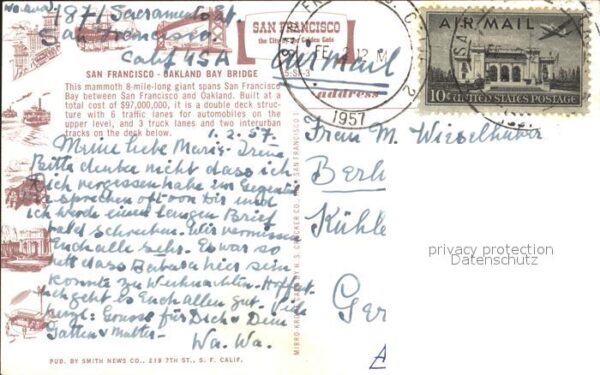 1871 Sacramento St.
San Francisco
Calif USA
SAN FRANCISCO
the City of the Golden Gate
S:SF-3
SAN FRANCISCO - OAKLAND BAY BRIDGE
This mammoth 8-mile-long giant spans San Francisco
Bay between San Francisco and Oakland. Built at a
total cost of $97,000,000, it is a double deck struc-
ture with 6 traffic lanes for automobiles on the
upper level, and 3 truck lanes and two interurban
tracks on the deck below.
1.2.57.
Meine liebe Marie-Irene
Bitte denke nicht dass ich
Dich vergessen habe im Gegenteil
sprechen oft von Dir und
ich werde einen langen Brief
bald schreiben. Wir vermissen
Euch alle sehr. Es war so
nett dass Barbara hier sein
konnte zu Weihnachten. Hoffentl.
geht es Euch allen gut. Viele
herzl. Grüsse für Dich, Dein
Gatten & Mutter.
Wa. Wa.
PUB. BY SMITH NEWS CO., 219 7TH ST., S. F. CALIF.
SAN FRANCISCO
FEB
12 M
1957
AIR MAIL
10¢ UNITED STATES POSTAGE
Air Mail
address
Frau M. Wieselhuber
Berl
Kühle
Ger
privacy protection
Datenschutz